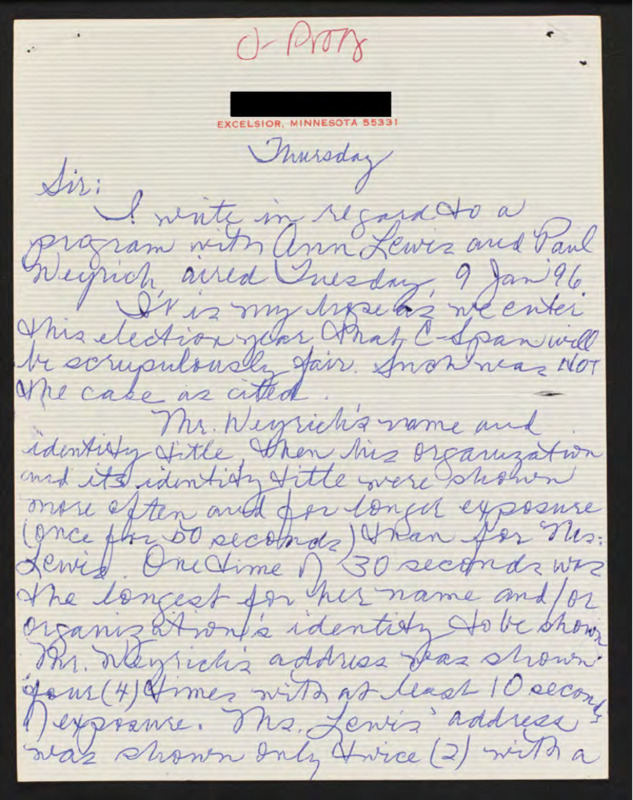 J-Prog
EXCELSIOR, MINNESOTA 55331
Thursday
Sir:
I write in regard to a
program with Ann Lewis and Paul
Weyrich, aired Tuesday, 9 Jan '96.
It is my hope as we enter
this election year that C-Span will
be scrupulously fair. Such was NOT
the case as cited.
Mr. Weyrich's name and
identity title, then his organization
and its identity title were shown
more often and for longer exposure
(once for 50 seconds) than for Ms.
Lewis. One time of 30 seconds was
the longest for her name and/or
organization's identity to be shown.
Mr. Weyrich's address was shown
four (4) times with at least 10 seconds
of exposure. Ms. Lewis' address
was shown only twice (2) with a